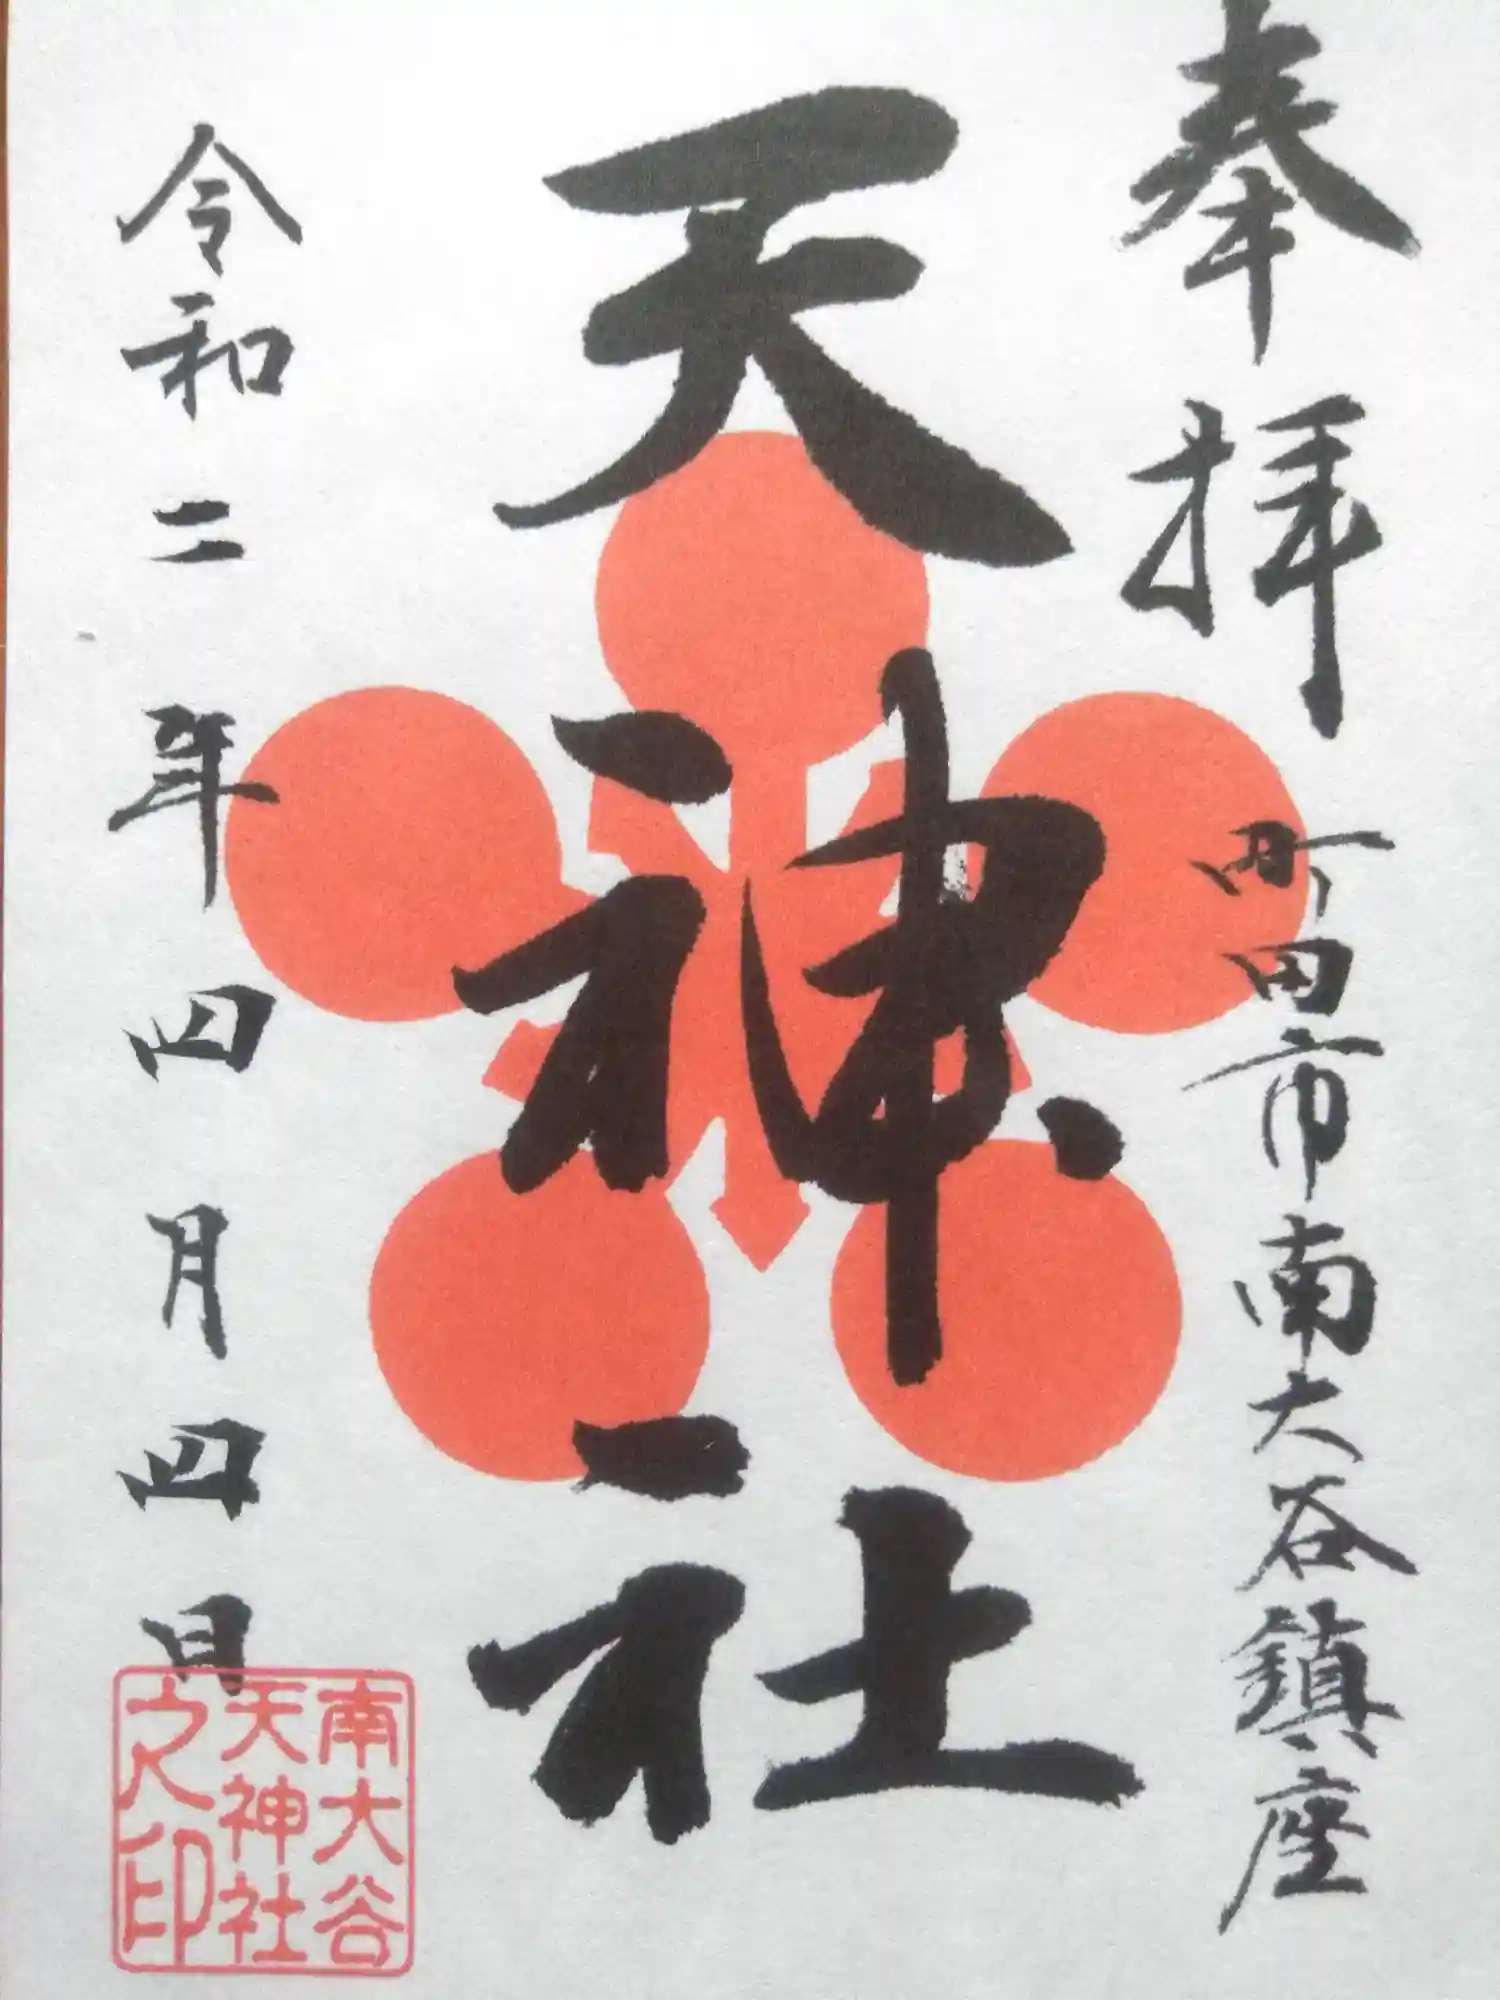 奉拝
町田市南大谷鎮座
天神社
令和二年四月四日
南大谷
天神社
之印